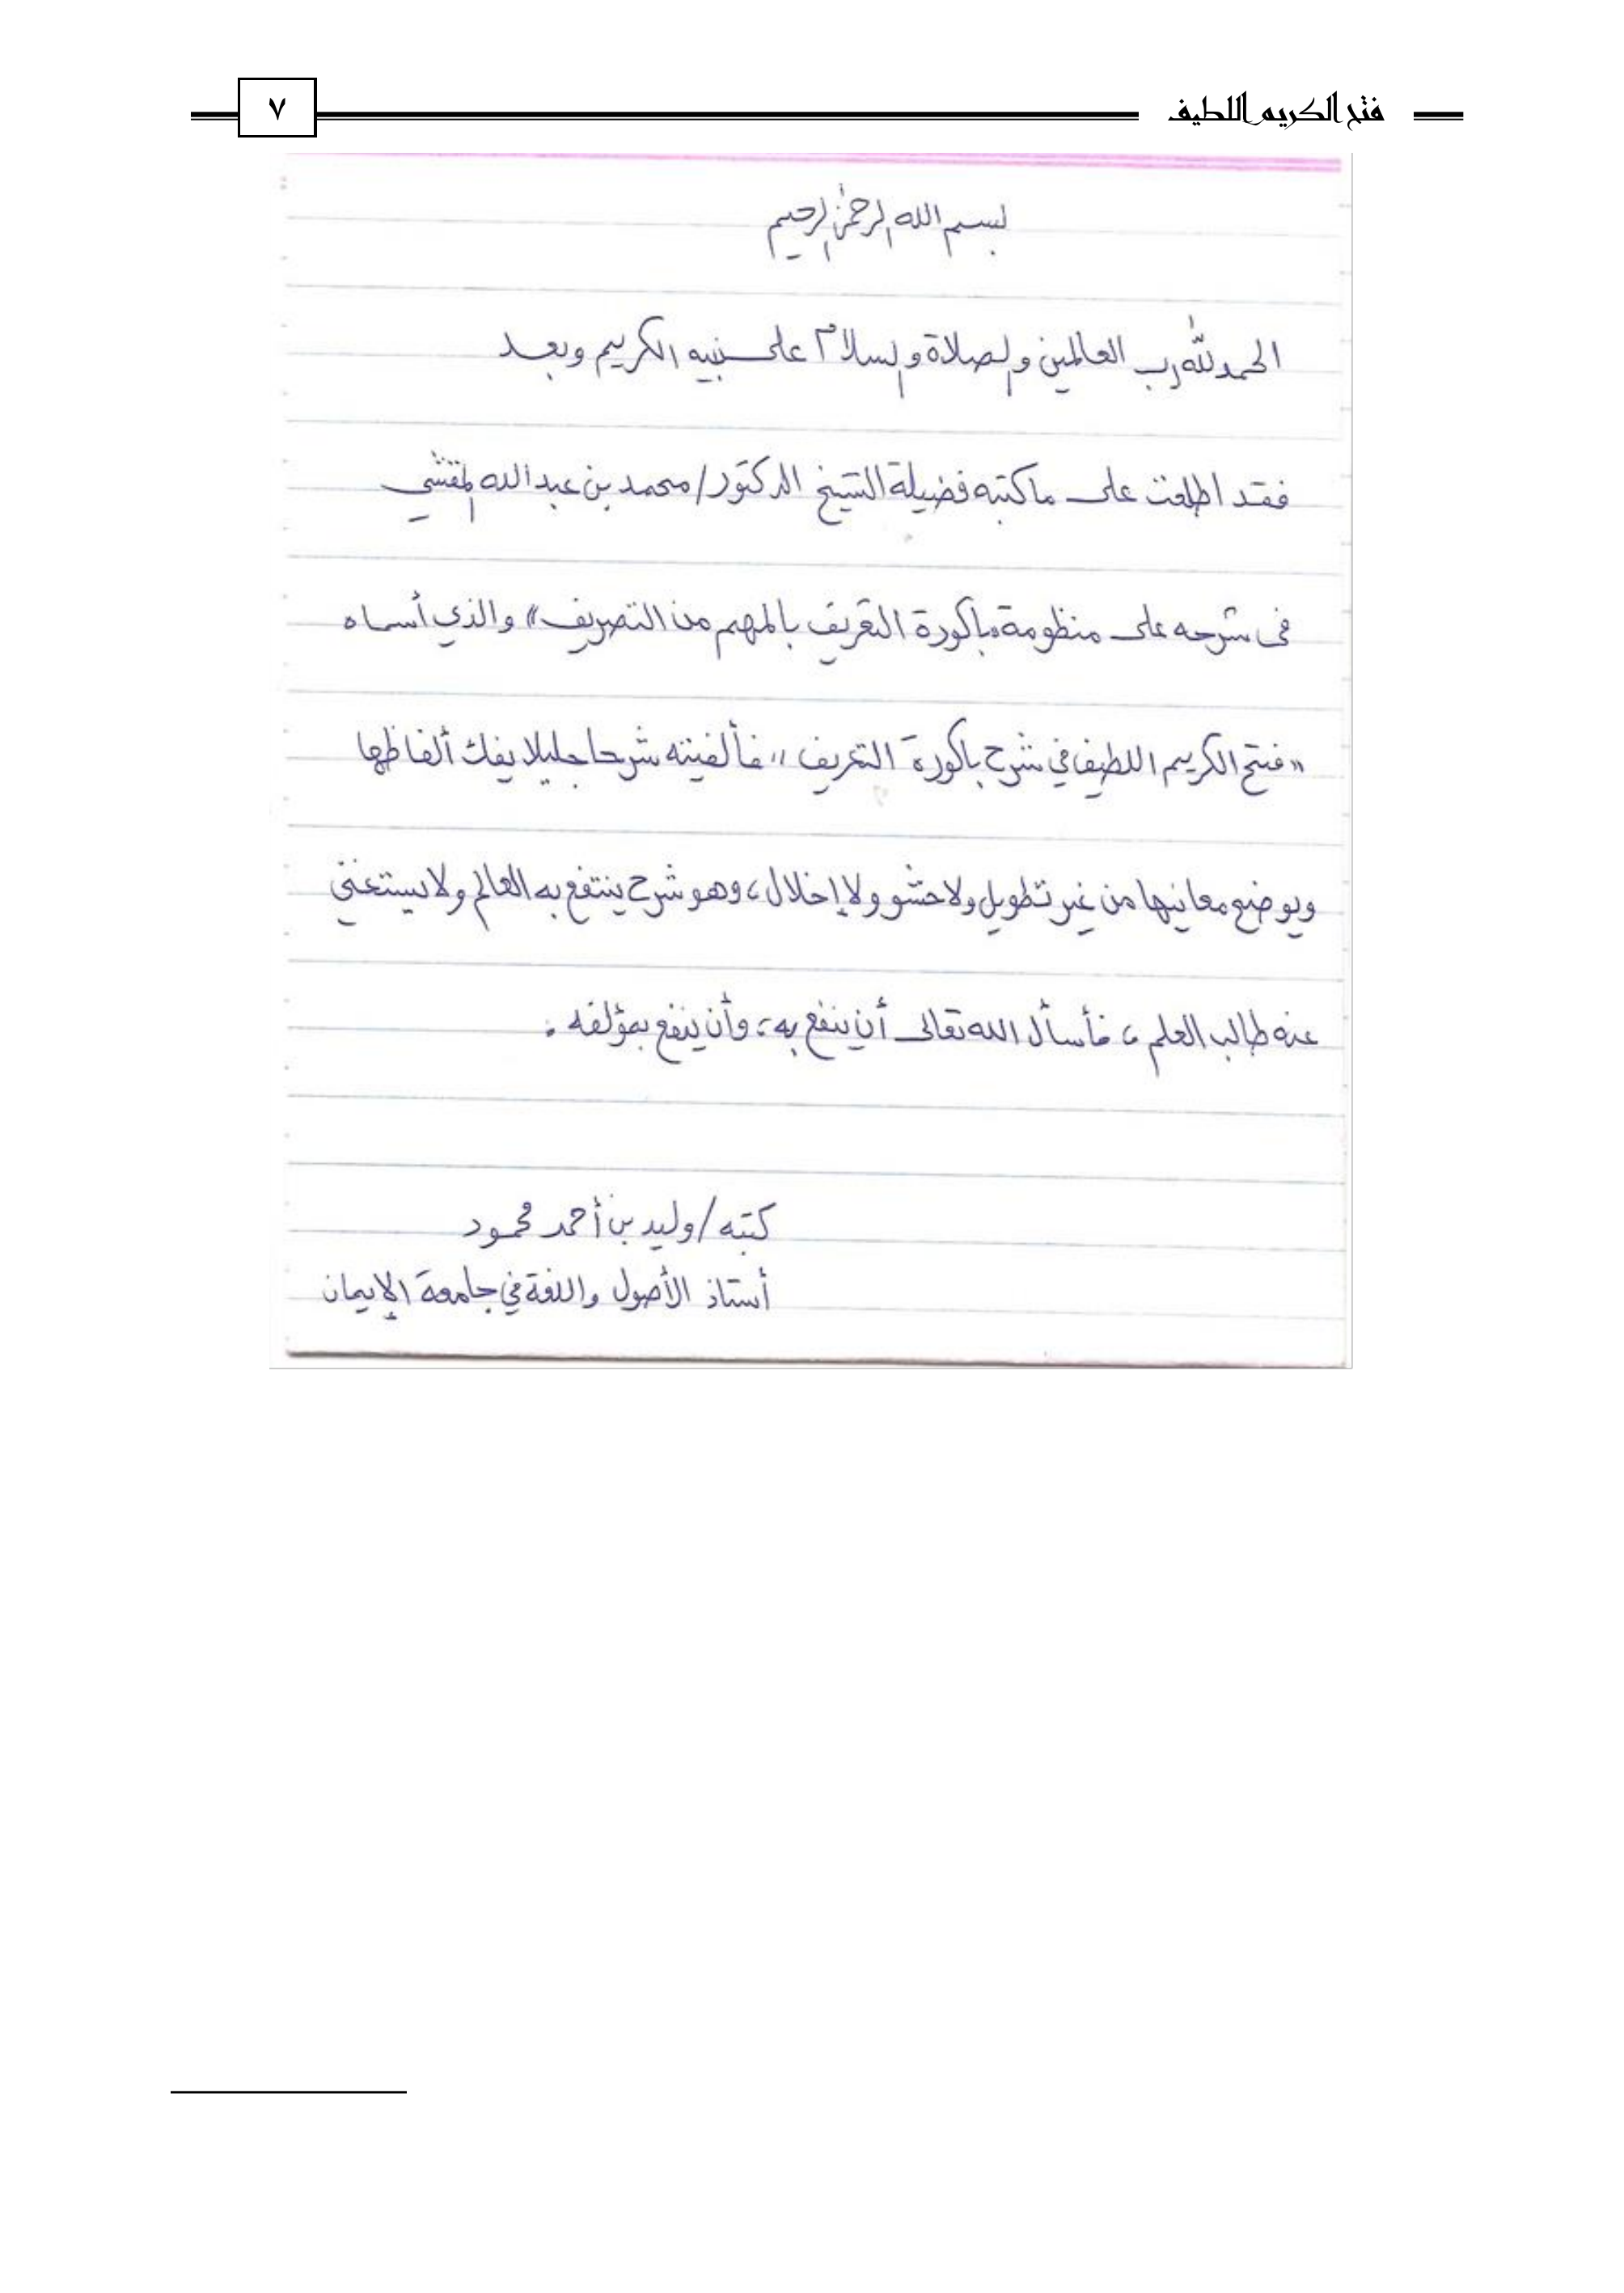 فتح الكريم اللطيف
٧
بسم الله الرحمٰن الرحيم
الحمد لله رب العالمين والصلاة والسلام على نبيه الكريم وبعد
فقد اطلعت على ما كتبه فضيلة الشيخ الدكتور/ محمد بن عبدالله المقشي
في شرحه على منظومة «باكورة التعريف بالمهم من التصريف» والذي أسماه
«فتح الكريم اللطيف في شرح باكورة التعريف» فألفيته شرحا جليلا يفك ألفاظها
ويوضح معانيها من غير تطويل ولا حشو ولا إخلال، وهو شرح ينتفع به العالم ولا يستغني
عنه طالب العلم، فأسأل الله تعالى أن ينفع به، وأن ينفع بمؤلفه.
كتبه/ وليد بن أحمد محمود
أستاذ الأصول واللغة في جامعة الإيمان